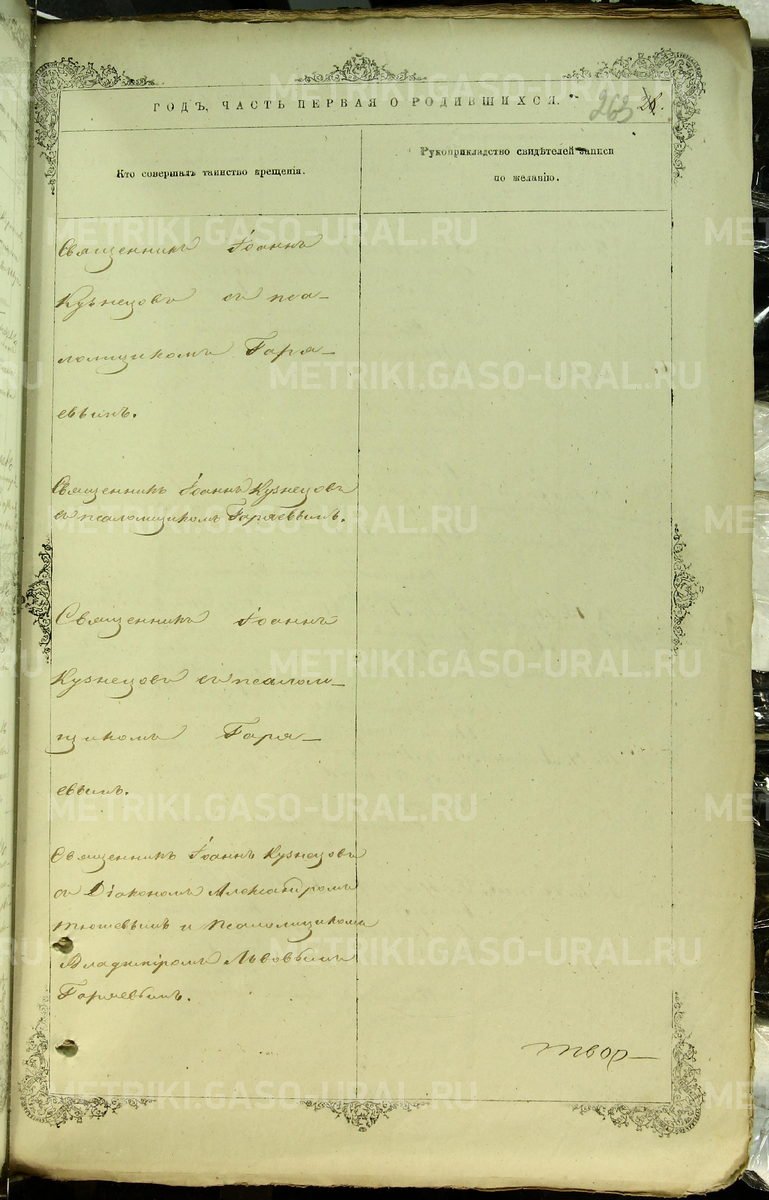 ГОДЪ, ЧАСТЬ ПЕРВАЯ О РОДИВШИХСЯ.
263
Кто совершалъ таинство крещенія.
Рукоприкладство свидѣтелей записи
по желанію.
Священникъ Іоаннъ
Кузнецовъ съ пса-
ломщикомъ Горя-
евымъ.
Священникъ Іоаннъ Кузнецовъ
съ псаломщикомъ Горяевымъ.
Священникъ Іоаннъ
Кузнецовъ съ псалом-
щикомъ Горя-
евымъ.
Священникъ Іоаннъ Кузнецовъ
съ Діакономъ Александромъ
и Псаломщикомъ
Владиміромъ Львовымъ
Горяевымъ.
METRIKI.GASO-URAL.RU